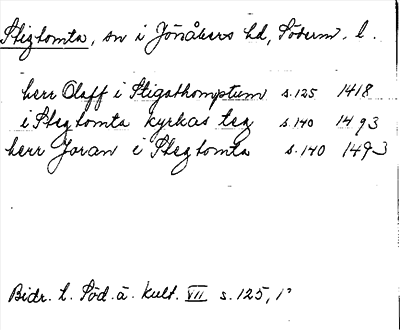 Stigtomta, sn i Jönåkers hd, Söderm. l.
herr Olaff i Stigathomptum s.125 1418
i Stegtomta kyrkas teg s.140 1493
herr Joran i Stegtomta s.140 1493
Bidr. t. Söd. ä. kult. VII s.125, 1